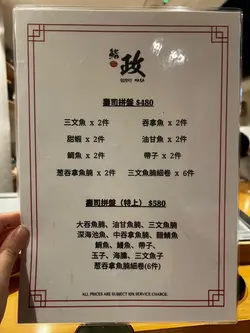 鮨 政
SUSHI MASA
壽司拼盤 $480
三文魚 x 2件 吞拿魚 x 2件
甜蝦 x 2件 油甘魚 x 2件
鯛魚 x 2件 帶子 x 2件
蔥吞拿魚腩 x 2件 三文魚腩細卷 x 6件
壽司拼盤（特上） $580
大吞魚腩、油甘魚腩、三文魚腩
深海池魚、中吞拿魚腩、醋鯖魚
鯛魚、鰻魚、帶子、
玉子、海膽、三文魚子
蔥吞拿魚腩細卷(6件)
ALL PRICES ARE SUBJECT 10% SERVICE CHARGE.